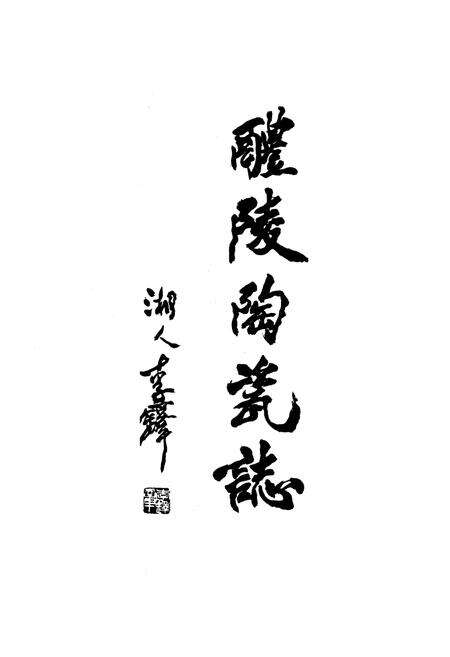 醴陵陶瓷誌
湘人李鐸